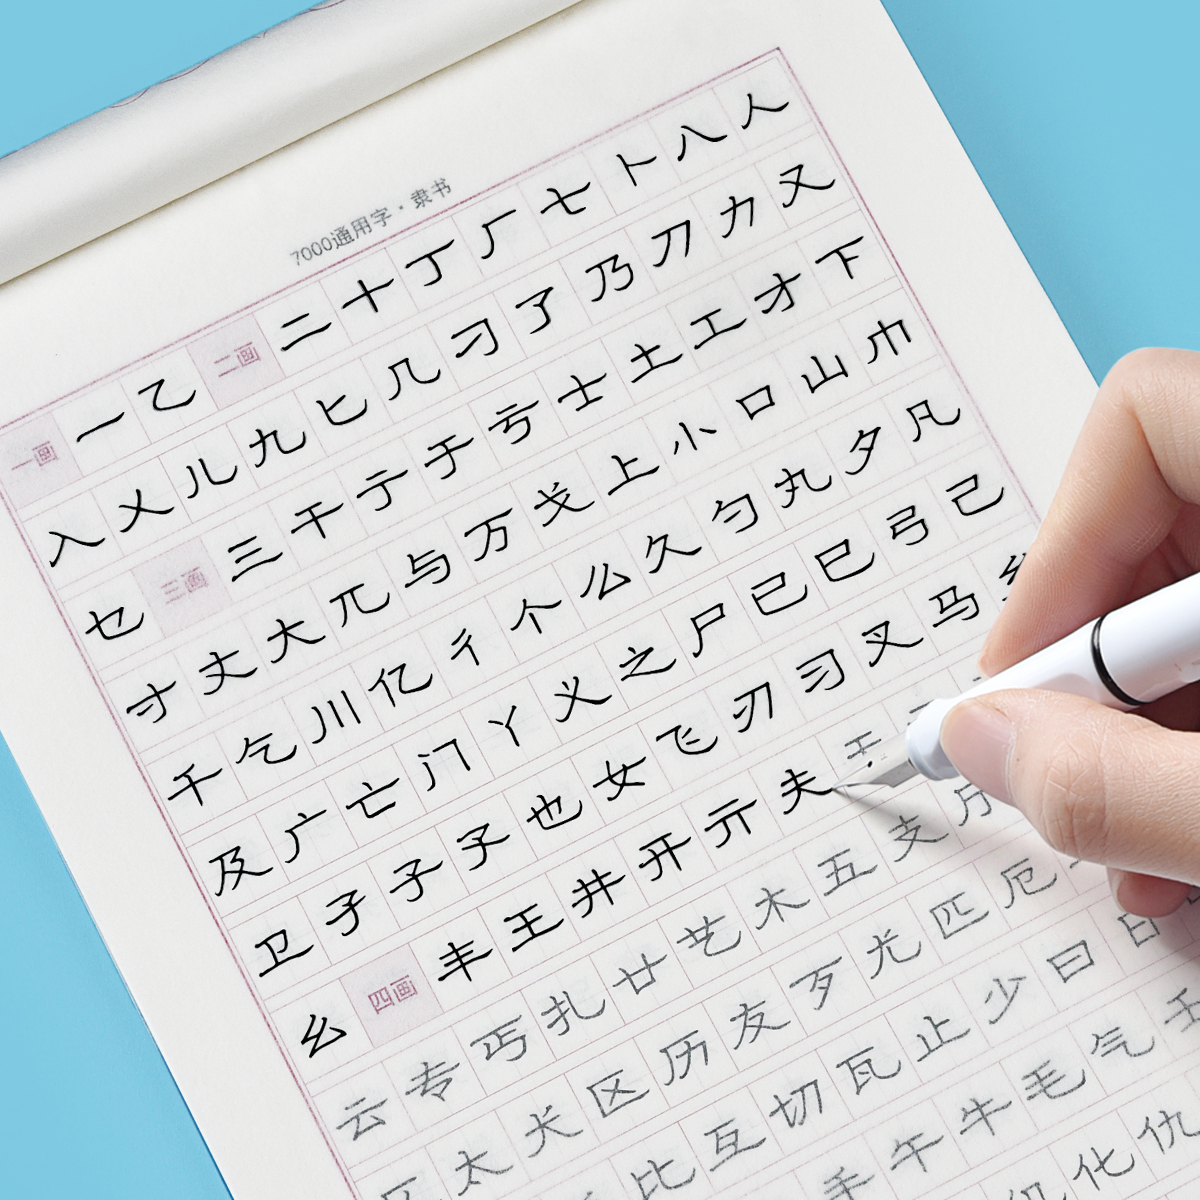 7000通用字·隶书
一画 一 乙 二画 二 十 丁 厂 七 卜 八 人
入 乂 儿 九 匕 几 刁 了 乃 刀 力 又
乜 三画 三 干 亍 于 亏 士 土 工 才 下
寸 丈 大 兀 与 万 弋 上 小 口 山 巾
千 乞 川 亿 彳 个 么 久 勺 丸 夕 凡
及 广 亡 门 丫 义 之 尸 已 巳 弓 己
卫 孑 子 孓 也 女 飞 刃 习 叉 马
幺 四画 丰 王 井 开 亓 夫 天
云 专 丐 扎 廿 艺 木 五 支 厅
太 犬 区 历 友 歹 尤 匹 厄
比 互 切 瓦 止 少 曰 日
手 午 牛 毛 气 壬
化 仇